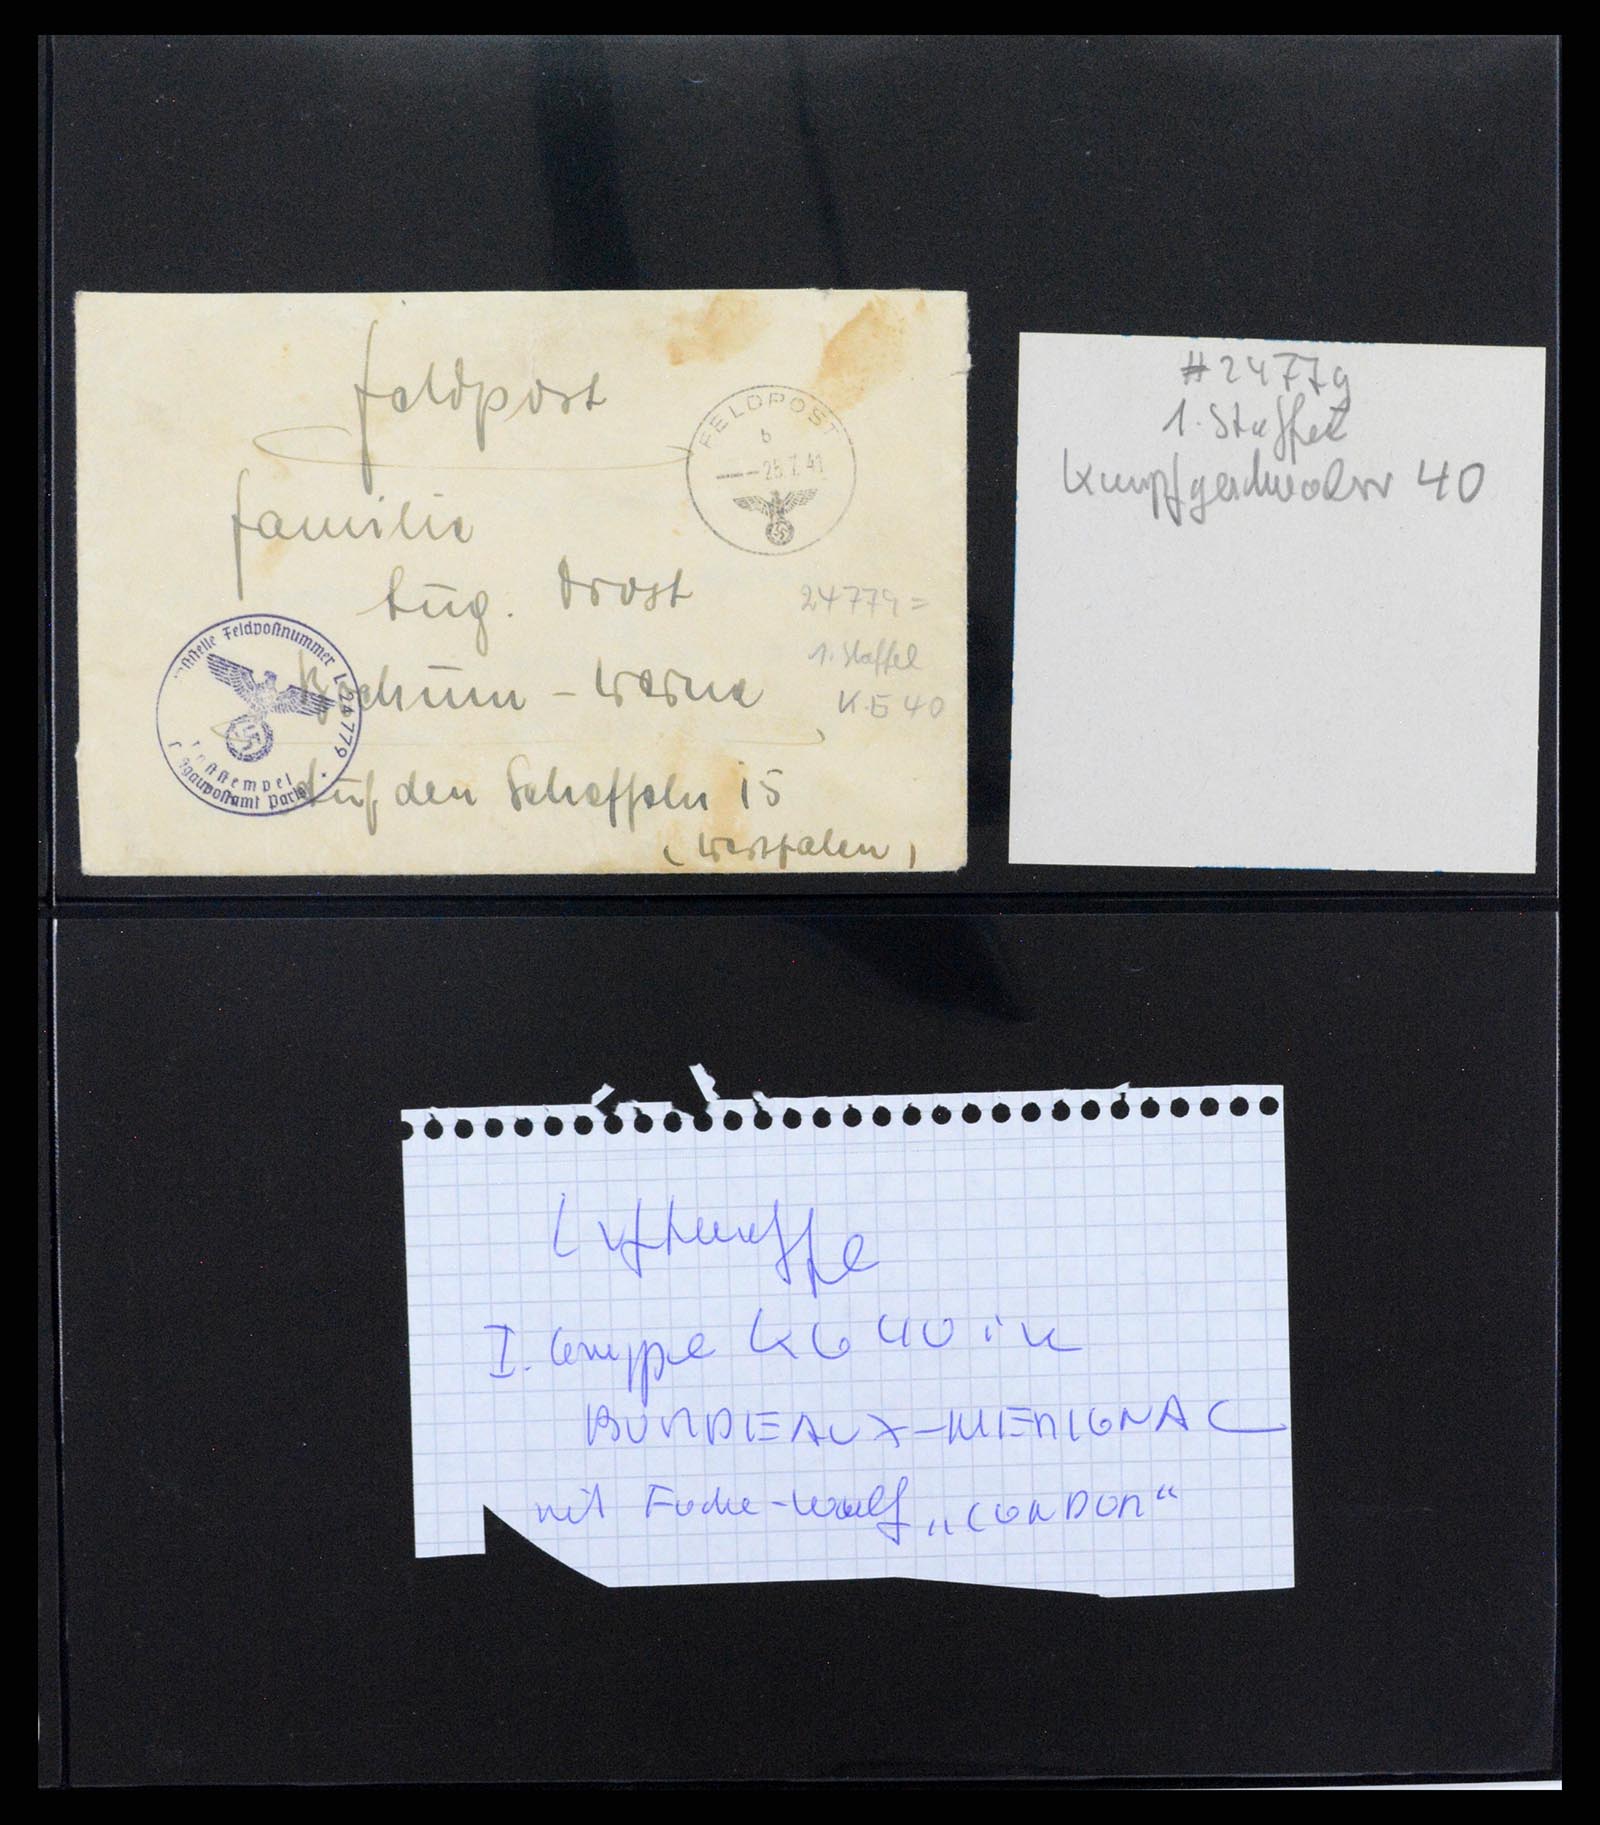 Feldpost
FELDPOST
b
--25.7.41
Familie
Aug. Drost
Bochum-Werne
Auf den Scheffeln 15
(Westfalen)
24779=
1. Staffel
K.G 40
Feldpostnummer L 24779
Luftgaupostamt Paris
#24779
1. Staffel
Kampfgeschwader 40
Luftwaffe
I. Gruppe KG 40 in
BORDEAUX-MERIGNAC
mit Focke-Wulf „CONDOR“